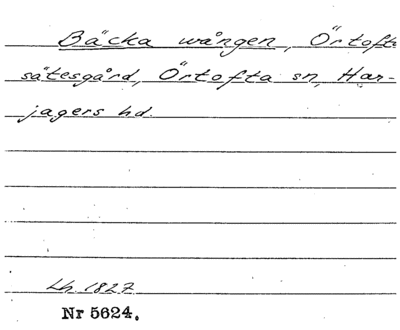 Bäcka wången, Örtofta
sätesgård, Örtofta sn, Har-
jagers hd.
Lh. 1827
Nr 5624.